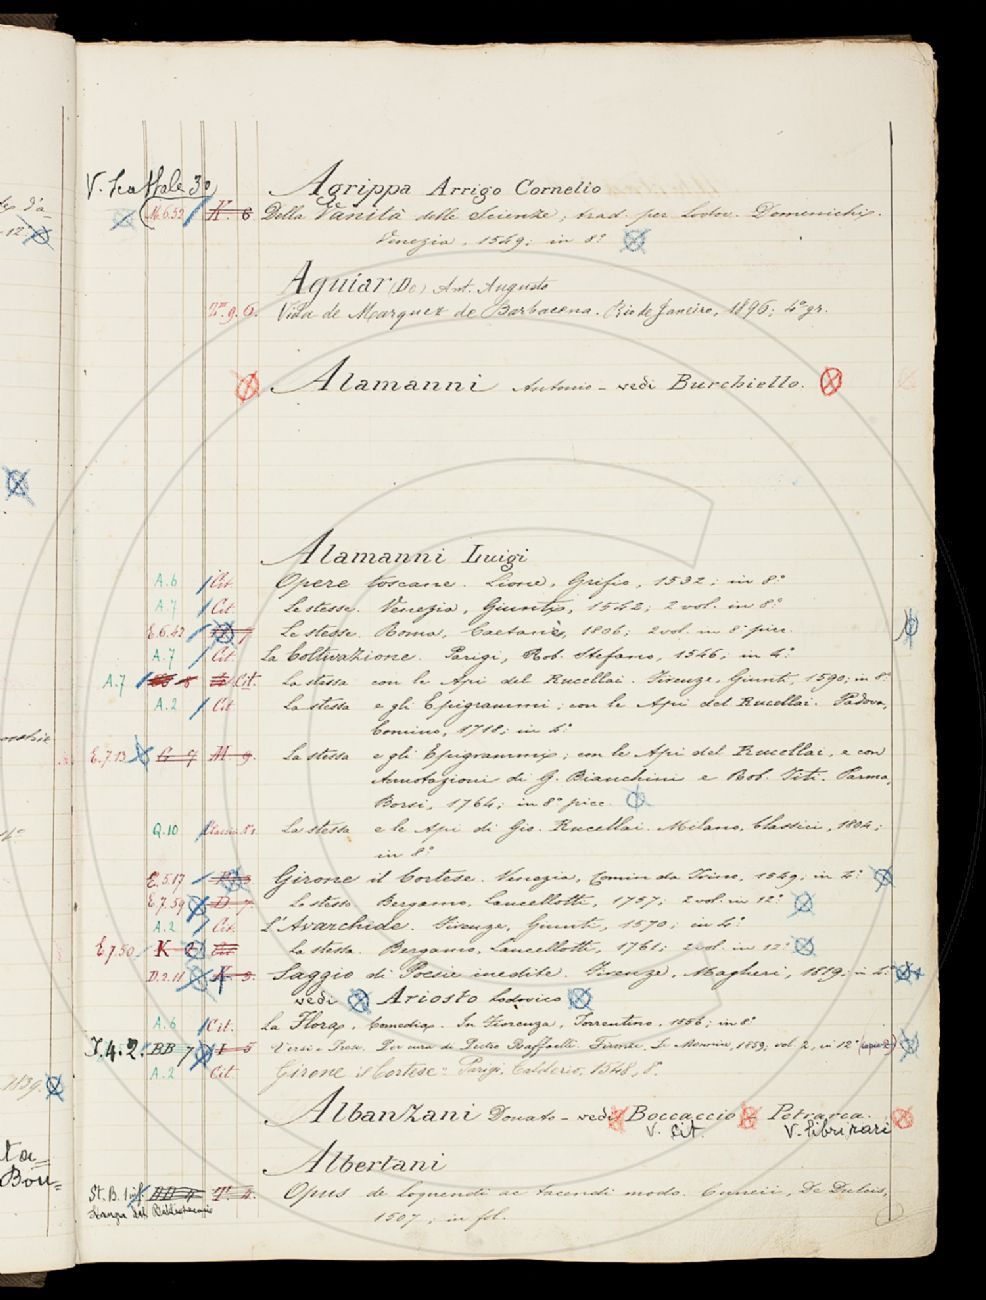 V. Scaffale 30
Agrippa Arrigo Cornelio
M.6.52 K 6 Della Vanità delle Scienze, trad. per Lodov. Domenichi.
Venezia, 1549; in 8º
Aguiar (De) Ant. Augusto
9. 6. Vida de Marquez de Barbacena. Rio de Janeiro, 1896; 4º gr.
Alamanni Antonio - vedi Burchiello.
Alamanni Luigi
A.6 Cit. Opere toscane. Lione, Grifio, 1532; in 8º
A.7 Cit. Le stesse. Venezia, Giunti, 1542; 2 vol. in 8º
E.6.47 7 Le stesse. Roma, Caetani, 1806; 2 vol. in 8º picc.
A.7 Cit. La Coltivazione. Parigi, Rob. Stefano, 1546; in 4º
A.7 Cit. La stessa con le Api del Rucellai. Firenze, Giunti, 1590; in 8º
A.2 Cit La stessa e gli Epigrammi; con le Api del Rucellai. Padova,
Comino, 1718; in 4º
E.7.13 G 7 M 9. La stessa e gli Epigrammi; con le Api del Rucellai, e con
Annotazioni di G. Bianchini e Rob. Titi. Parma,
Borsi, 1764; in 8º picc.
Q.10 La stessa e le Api di Gio. Rucellai. Milano, Classici, 1804;
in 8º
E.5.17 Girone il Cortese. Venezia, Comin da Trino, 1549; in 4º
E.7.59 D 7 Lo stesso Bergamo, Lancellotti, 1757; 2 vol. in 12º
A.2 Cit. L'Avarchide. Firenze, Giunti, 1570; in 4º
E.7.50 K Cit La stessa. Bergamo, Lancellotti, 1761; 2 vol. in 12º
D.2.11 3. Saggio di Poesie inedite. Firenze, Magheri, 1819; in 4º
vedi Ariosto Lodovico
A.6 Cit. La Flora, Comedia. In Fiorenza, Torrentino, 1556; in 8º
I.4.2. BB 7 I 5 Versi e Prose. Per cura di Pietro Raffaelli. Firenze, Le Monnier, 1859; vol. 2, in 12º (copie 2)
A.2 Cit Girone il Cortese. Parigi, Calderio, 1548, 8º.
Albanzani Donato - vedi Boccaccio Petrarca.
V. Cit. V. libri rari
Albertani
St. B. Opus de loquendi ac tacendi modo. Cuneii, De Dulcis,
Stanza del Bibliotecario
1507; in fol.
1839.